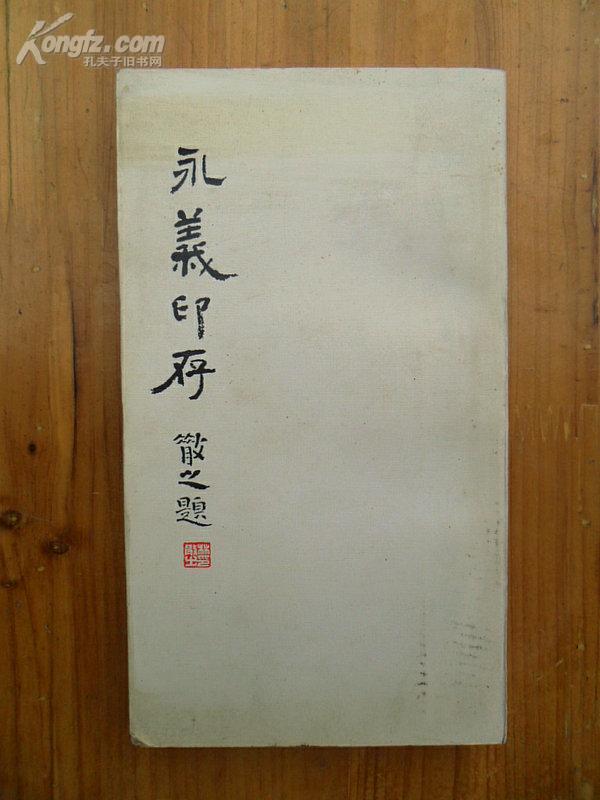 Kongfz.com
孔夫子旧书网
永義印存
散之題
林散之